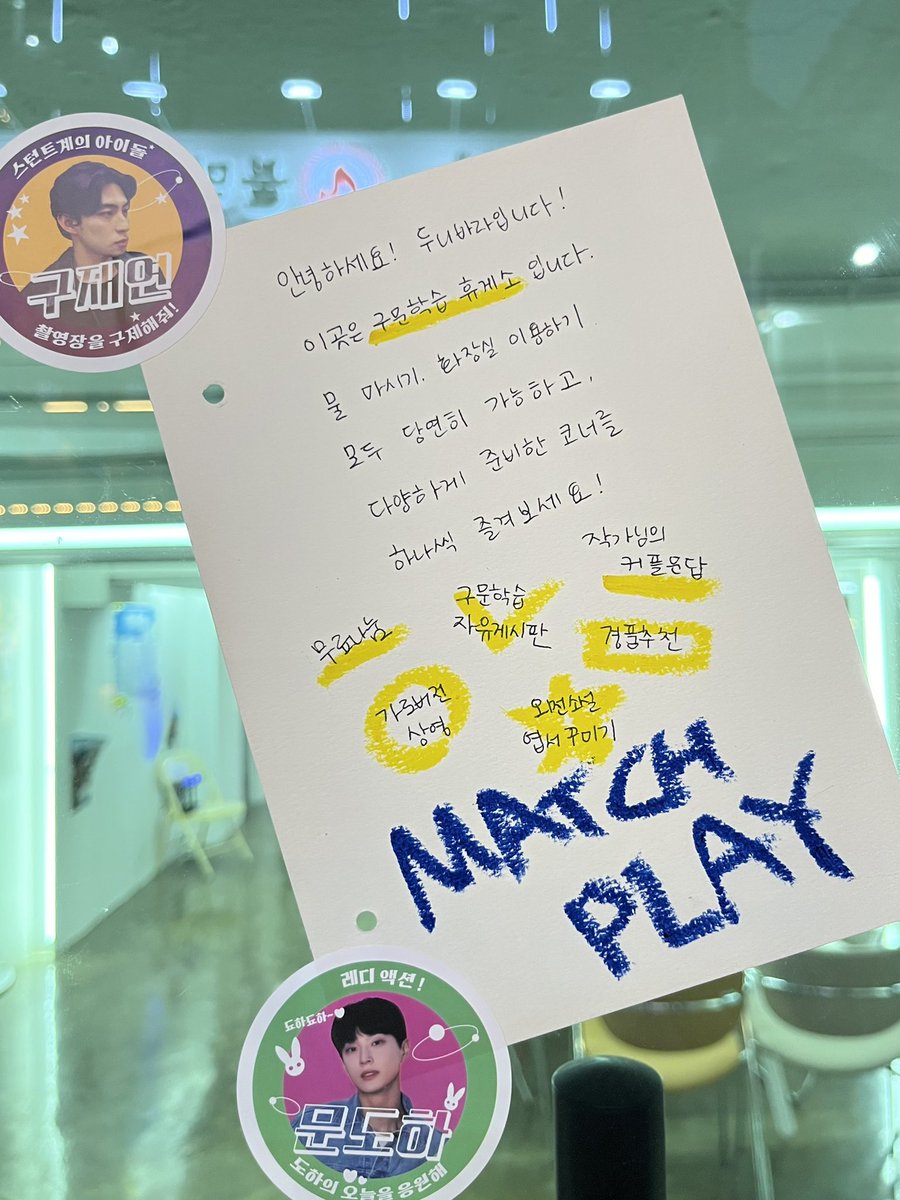 스턴트계의 아이돌*
구제연
촬영장을 구제해줘!
안녕하세요! 두니바라입니다!
이곳은 구문학습 휴게소 입니다.
물 마시기, 화장실 이용하기
모두 당연히 가능하고,
다양하게 준비한 코너를
하나씩 즐겨보세요!
작가님의
커플문답
구문학습
자유게시판
무료나눔
경품추천
가로버전
상영
외전소설
엽서 꾸미기
MATCH
PLAY
레디 액션!
도하도하~
문도하
도하의 오늘을 응원해